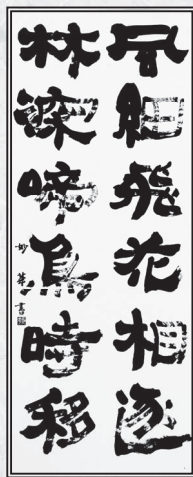 風細飛花相逐
林深啼鳥時移
妙華書